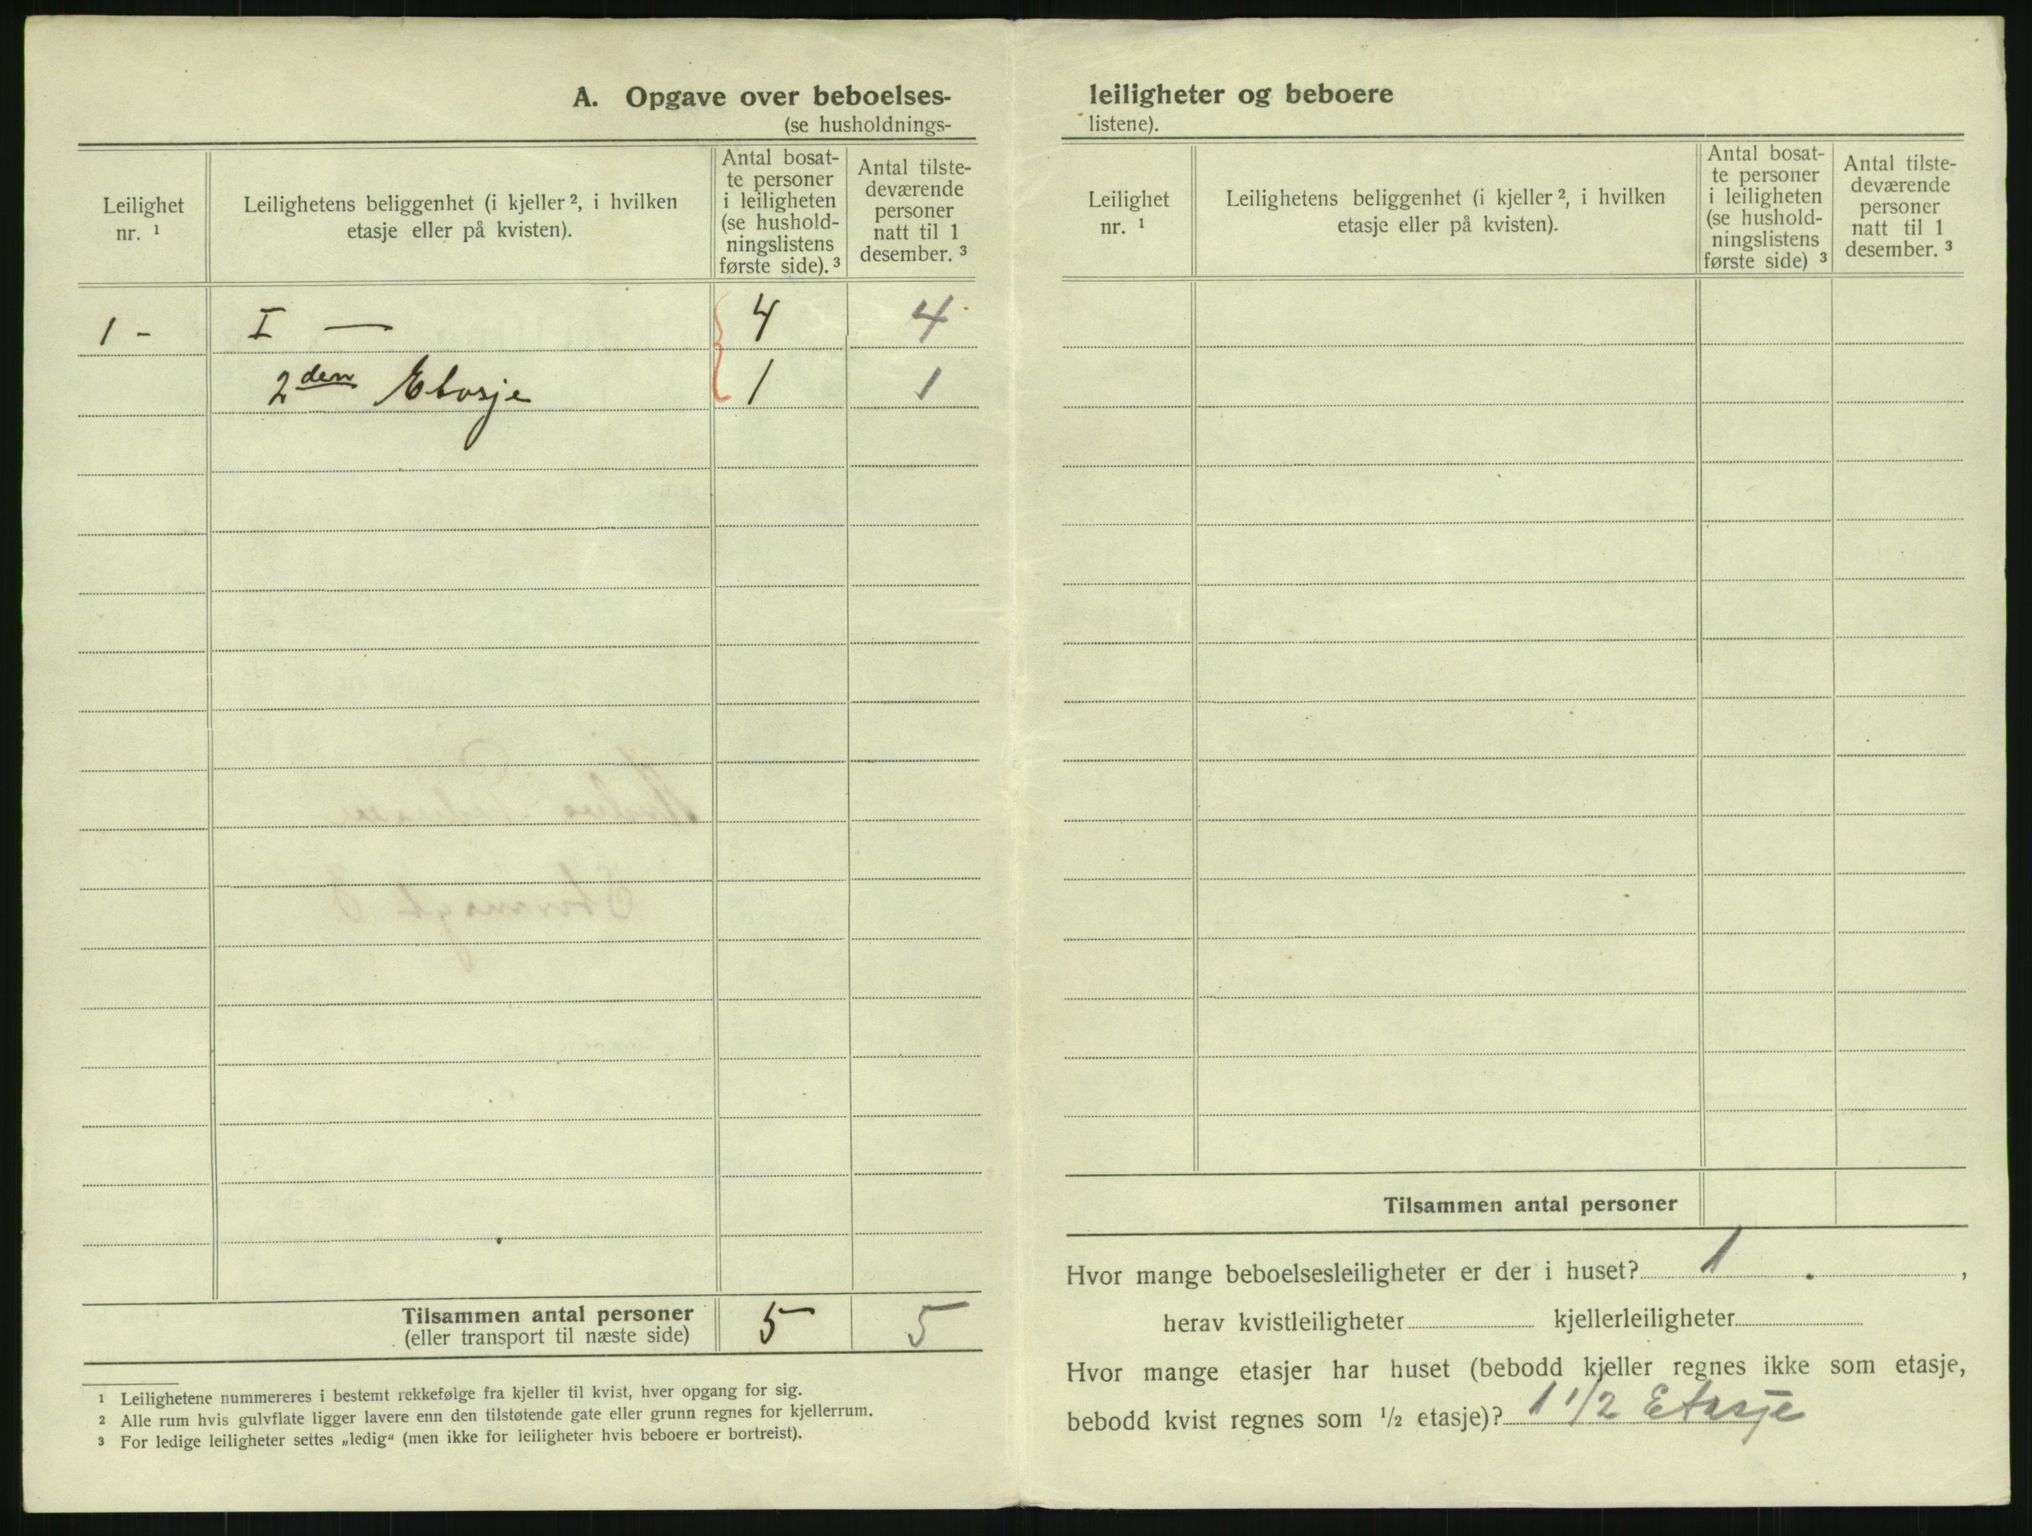 A. Opgave over beboelses-
(se husholdnings-
Leilighet nr. ¹
Leilighetens beliggenhet (i kjeller ², i hvilken etasje eller på kvisten).
Antal bosat-
te personer
i leiligheten
(se hushold-
ningslistens
første side). ³
Antal tilste-
deværende
personer
natt til 1
desember. ³
1 - I — 4 4
2den Etasje 1 1
Tilsammen antal personer 5 5
(eller transport til næste side)
¹ Leilighetene nummereres i bestemt rekkefølge fra kjeller til kvist, hver opgang for sig.
² Alle rum hvis gulvflate ligger lavere enn den tilstøtende gate eller grunn regnes for kjellerrum.
³ For ledige leiligheter settes „ledig“ (men ikke for leiligheter hvis beboere er bortreist).
leiligheter og beboere
listene).
Leilighet nr. ¹
Leilighetens beliggenhet (i kjeller ², i hvilken etasje eller på kvisten).
Antal bosat-
te personer
i leiligheten
(se hushold-
ningslistens
første side) ³
Antal tilste-
deværende
personer
natt til 1
desember. ³
Tilsammen antal personer
Hvor mange beboelsesleiligheter er der i huset? 1 . ,
herav kvistleiligheter kjellerleiligheter
Hvor mange etasjer har huset (bebodd kjeller regnes ikke som etasje,
bebodd kvist regnes som ½ etasje)? 1 1/2 Etasje